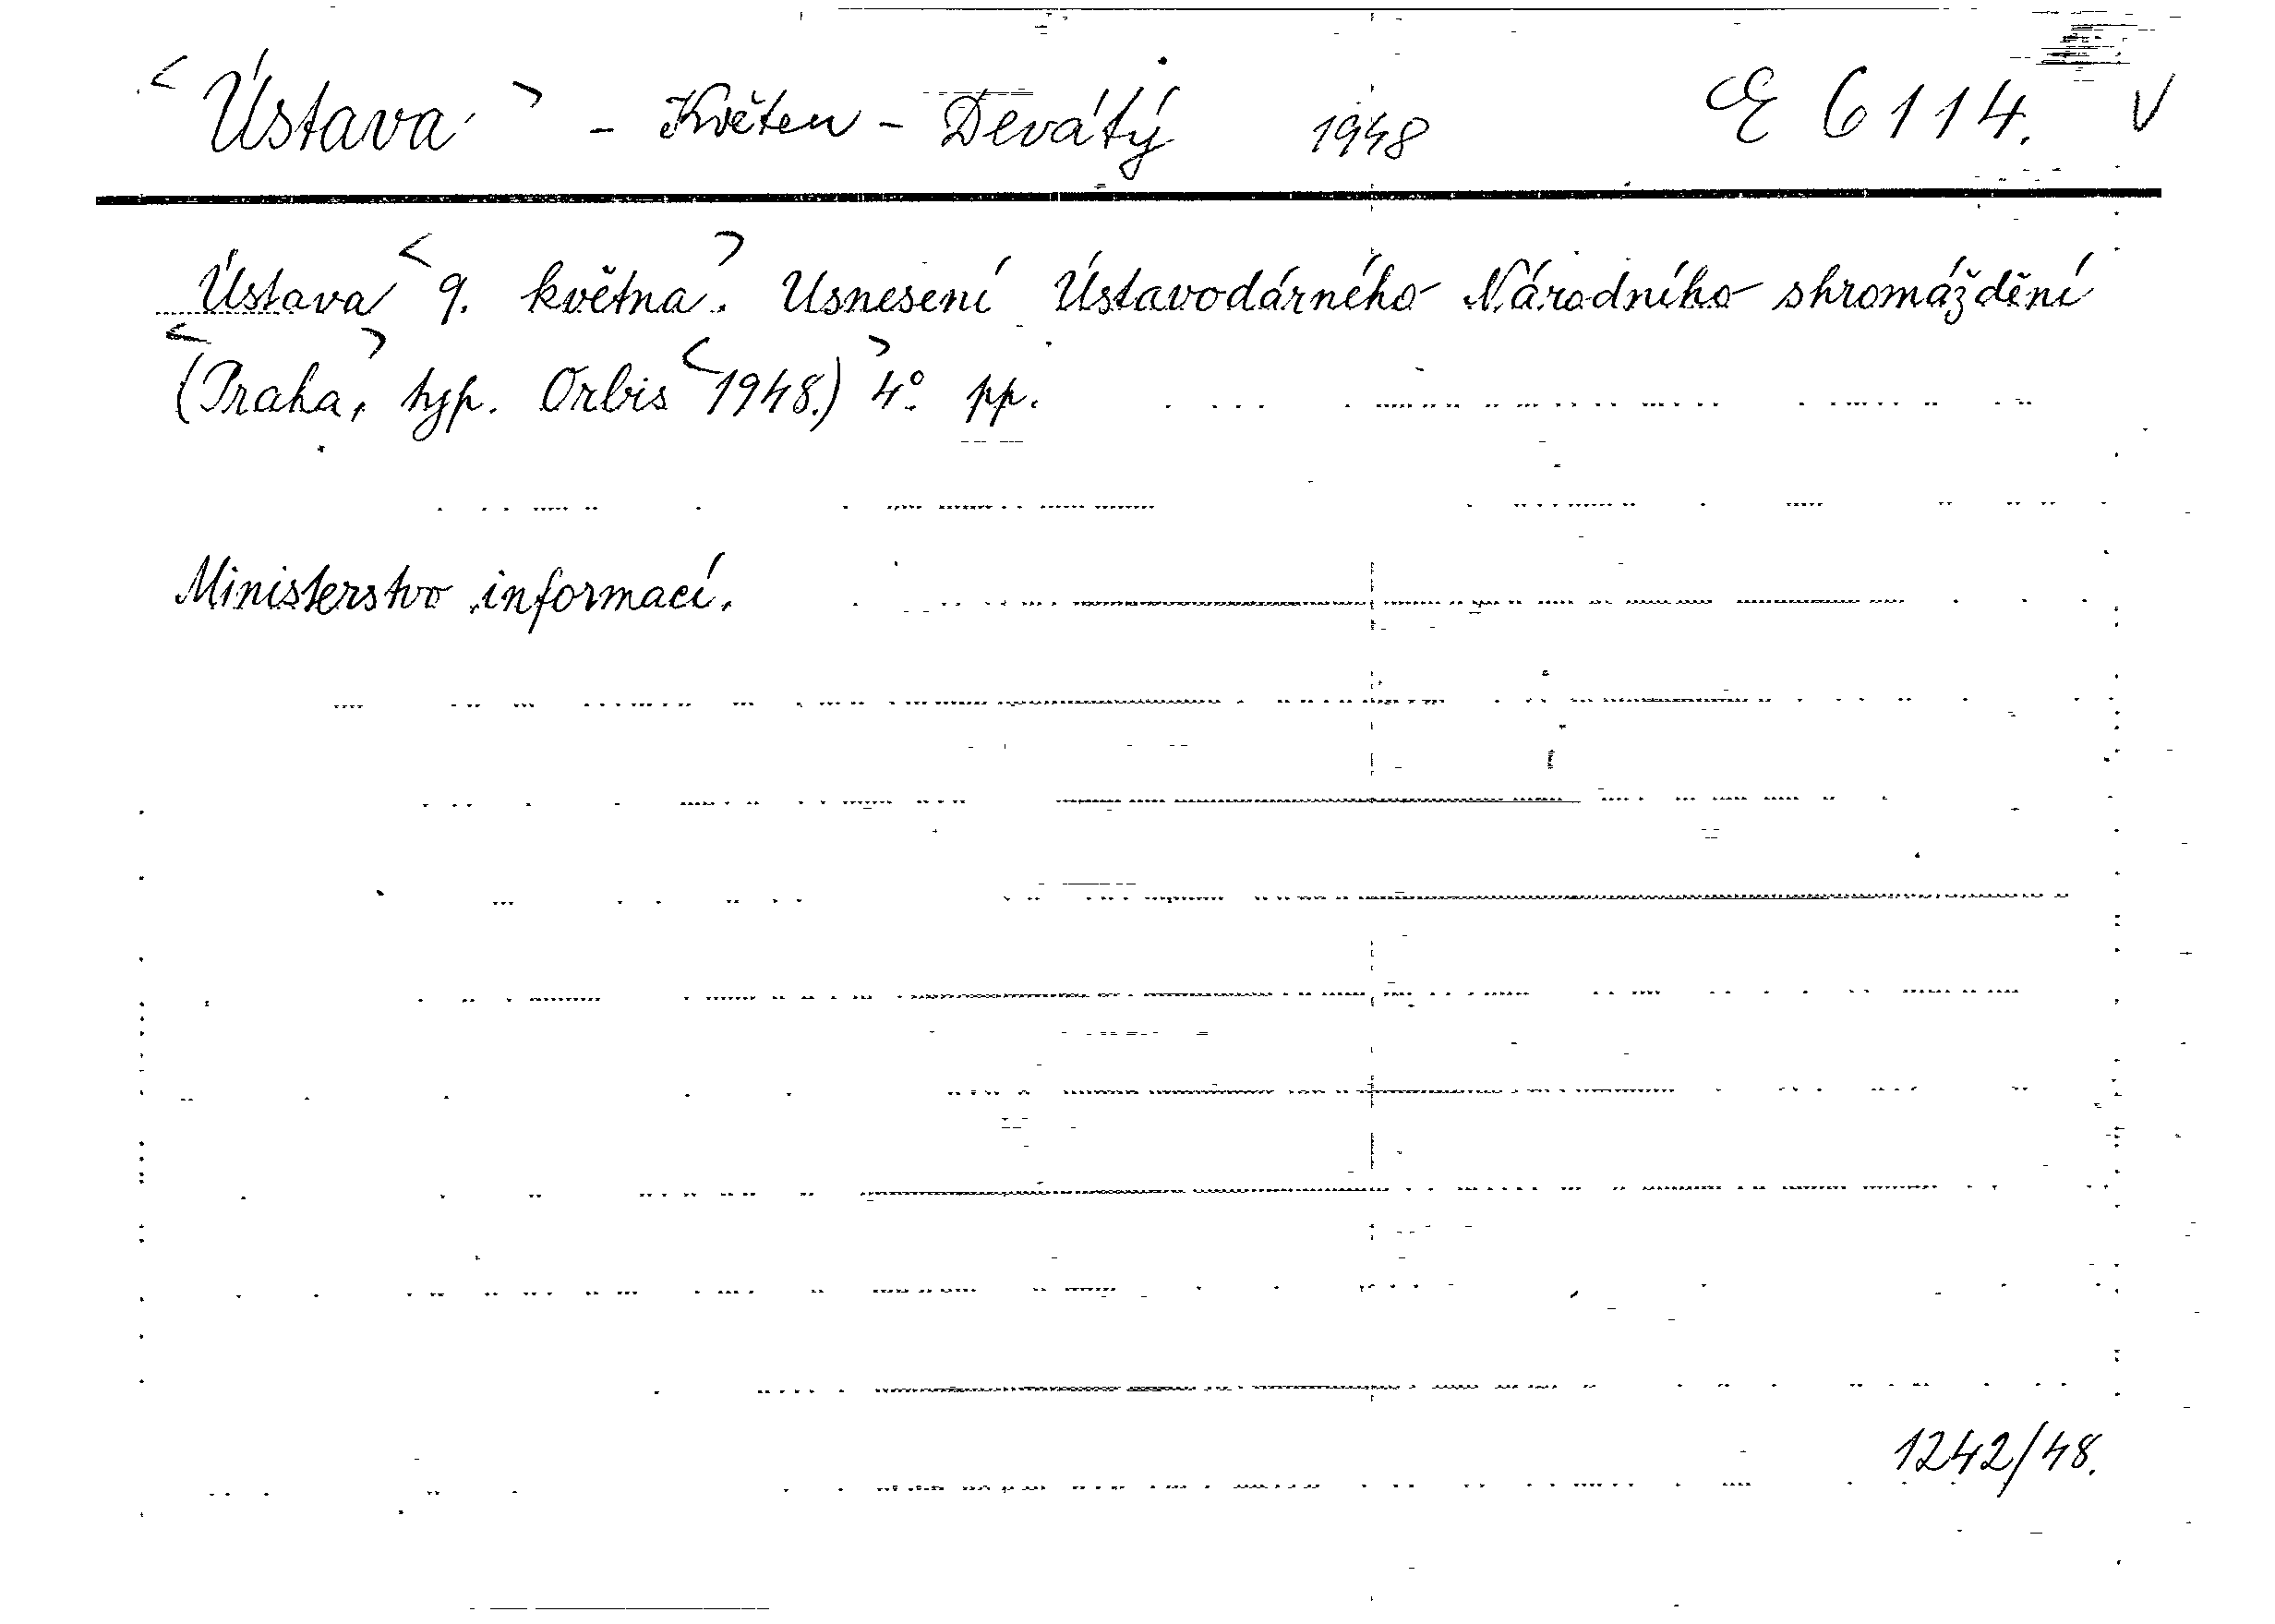 <Ústava> - Květen - Devátý 1948 E 6114. V
Ústava <9. května>. Usnesení Ústavodárného Národního shromáždění
<(Praha,> typ. Orbis <1948.)> 4° pp.
Ministerstvo informací.
1242/48.